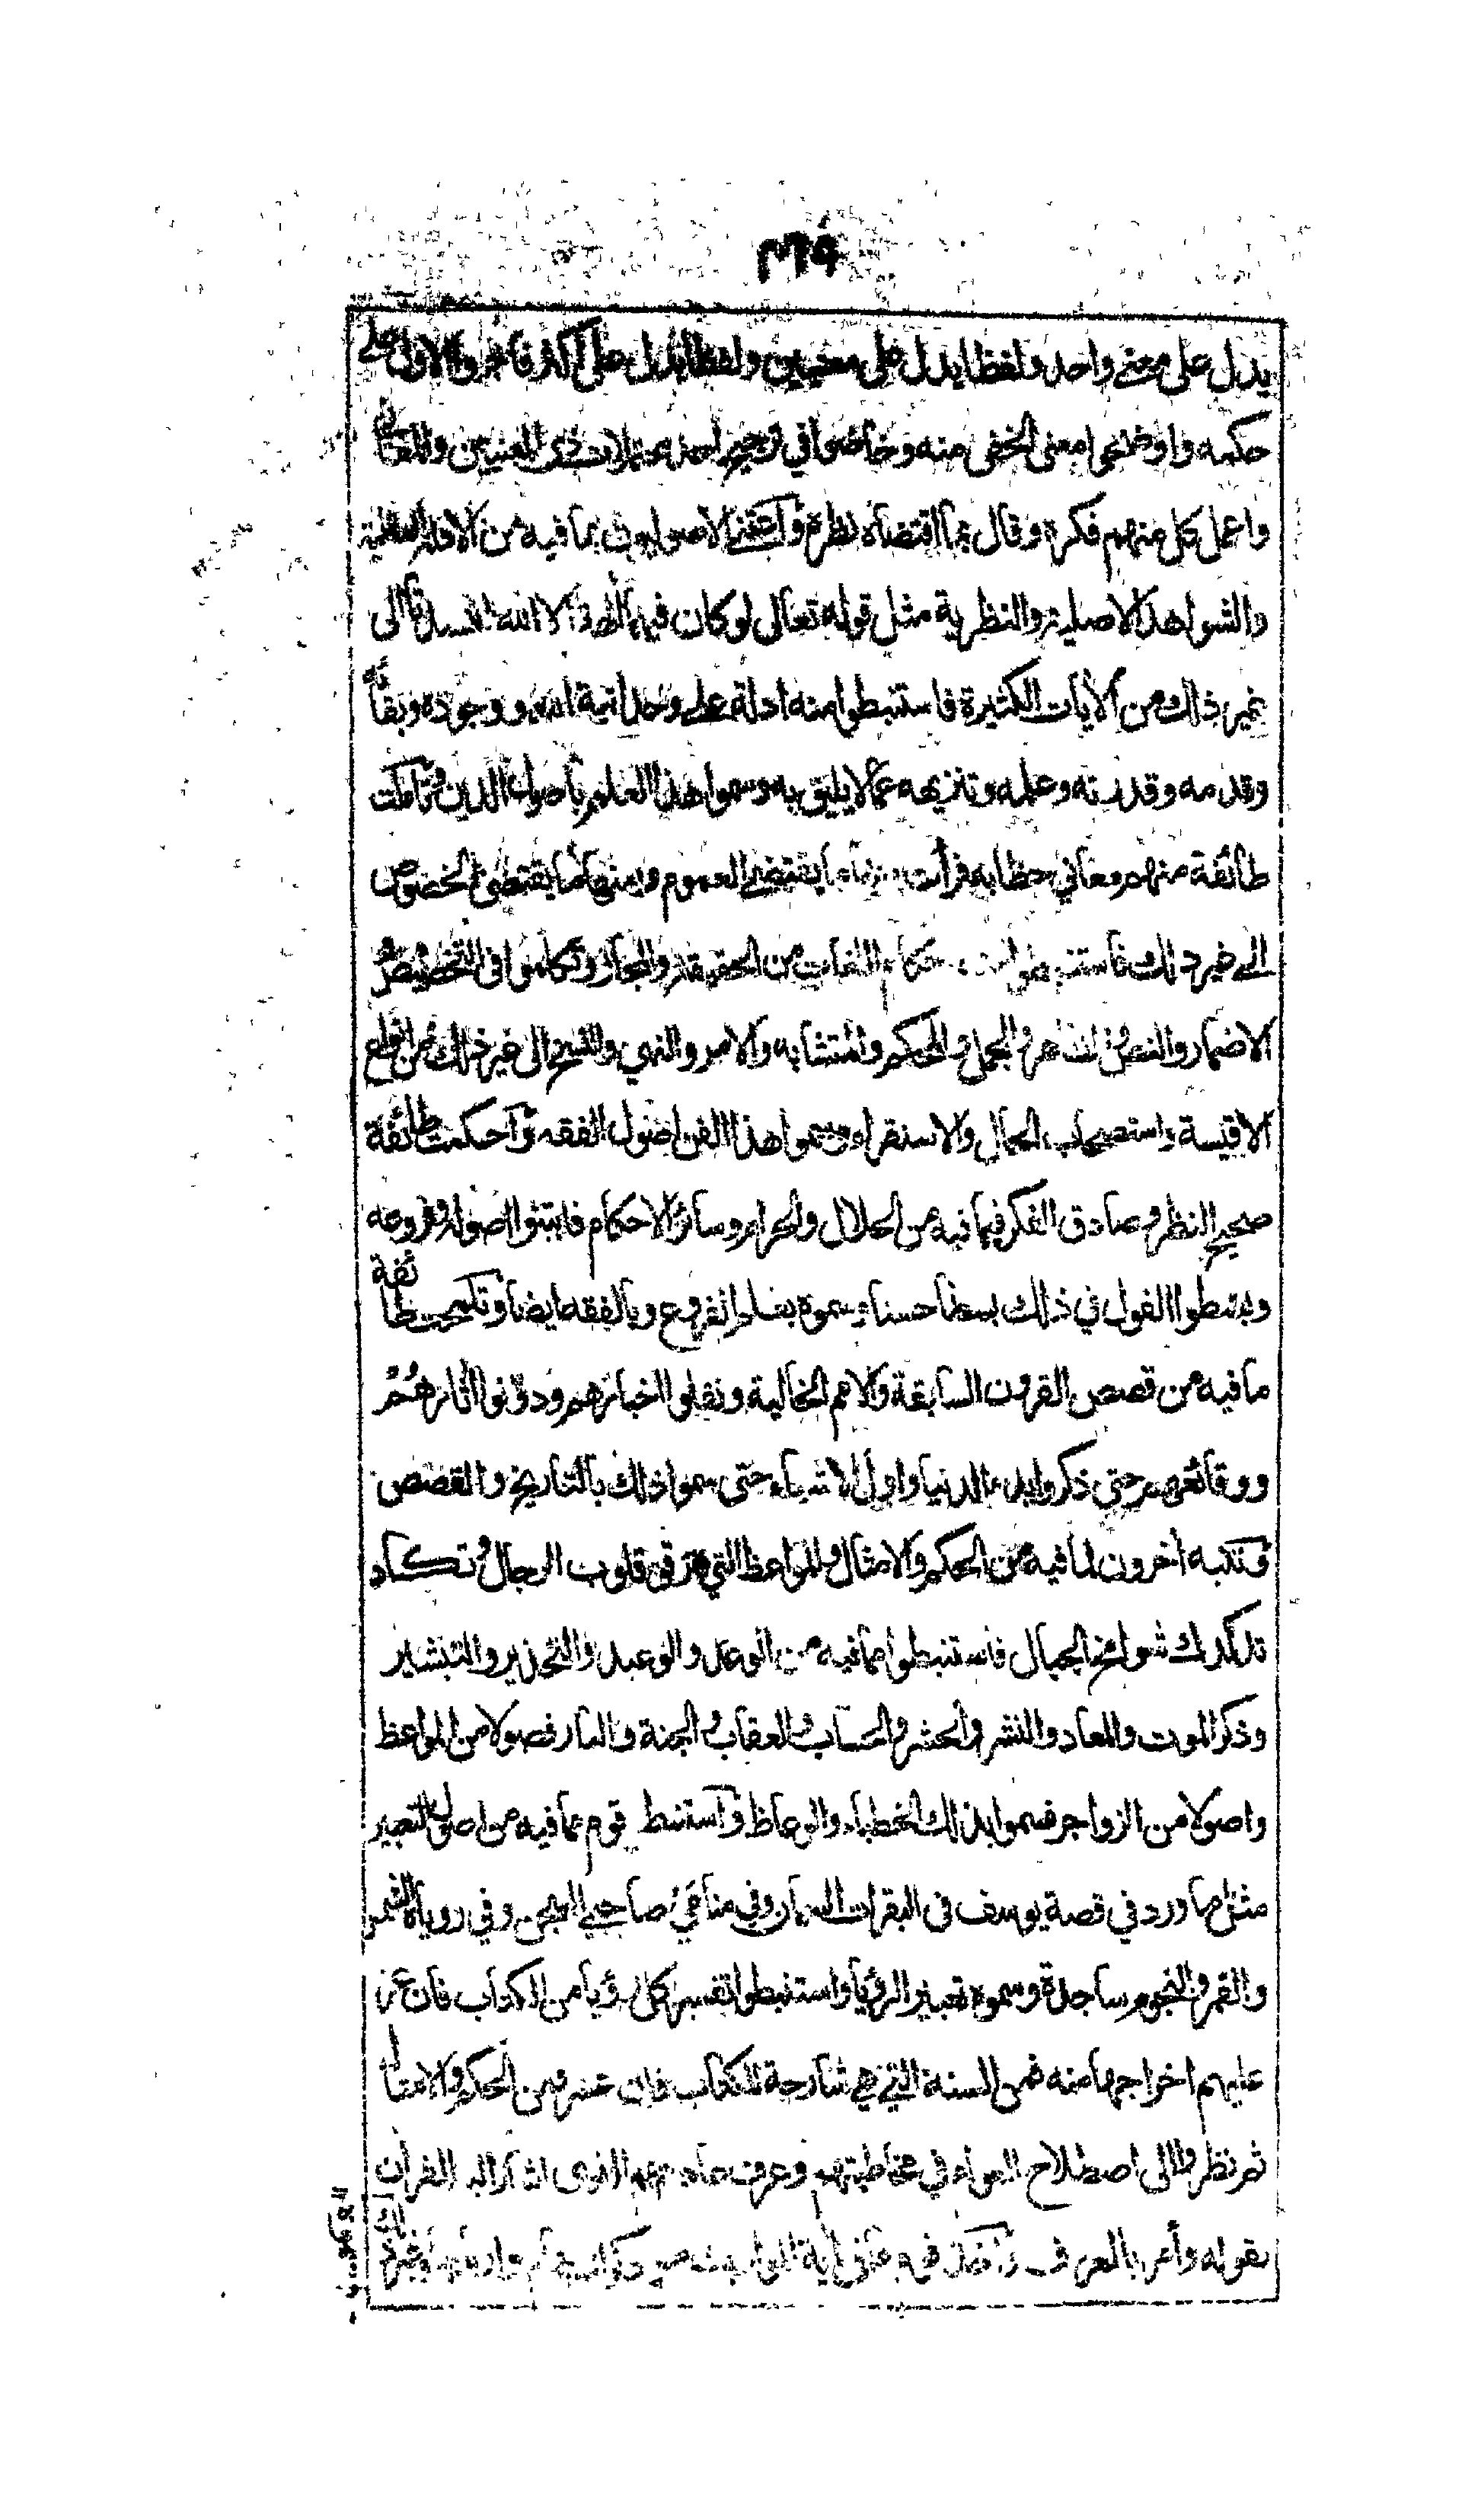 ٣٦٩
يدل على معنى واحد ولفظا يدل على معنيين ولفظا يدل على اكثر فاجروا الاول على
حكمه واوضحوا معنى الخفى منه وخاضوا في ترجيح احد محتملات ذى المعنيين والمعانى
واعمل كل منهم فكره وقال بما اقتضاه نظره واعتنى الاصوليون بما فيه من الادلة العقلية
والشواهد الاصلية والنظرية مثل قوله تعالى لو كان فيهما آلهة الا الله لفسدتا الى
غير ذلك من الآيات الكثيرة فاستنبطوا منه ادلة على وحدانية الله ووجوده وبقائه
وقدمه وقدرته وعلمه وتنزيهه عما لا يليق به وسموا هذا العلم بأصول الدين وتأملت
طائفة منهم معاني خطابه فرأت منها ما يقتضى العموم ومنها ما يقتضى الخصوص
الى غير ذلك فاستنبطوا منه احكام اللغات من الحقيقة والمجاز وتكلموا فى التخصيص و
الاضمار والنص والظاهر والمجمل والمحكم والمتشابه والامر والنهي والنسخ الى غير ذلك من انواع
الاقيسة واستصحاب الحال والاستقراء وسموا هذا الفن اصول الفقه واحكمت طائفة
صحيح النظر وصادق الفكر فيما فيه من الحلال والحرام وسائر الاحكام فابتنوا اصوله وفروعه
وبسطوا القول في ذلك بسطا حسنا وسموه بعلم الفروع وبالفقه ايضا وتلمحت طائفة
ما فيه من قصص القرون السابقة والامم الخالية ونقلوا اخبارهم ودونوا آثارهم
ووقائعهم حتى ذكروا بدء الدنيا واول الاشياء حتى سموا ذلك بالتاريخ والقصص
وتنبه آخرون لما فيه من الحكم والامثال والمواعظ التي ترقق قلوب الرجال وتكاد
تدكدك شوامخ الجبال فاستنبطوا مما فيه من الوعد والوعيد والتحذير والتبشير
وذكر الموت والمعاد والنشر والحشر والحساب والعقاب والجنة والنار فصولا من المواعظ
واصولا من الزواجر فسموا بذلك الخطباء والوعاظ واستنبط قوم مما فيه من اصول التعبير
مثل ما ورد في قصة يوسف فى البقرات السمان وفي منامى صاحبي السجن وفي روياه الشمس
والقمر والنجوم ساجدة وسموه تعبير الرؤيا واستنبطوا تفسير كل رؤيا من الكتاب فان عز
عليهم اخراجها منه فمن السنة التي هي شارحة للكتاب فان عسر فمن الحكم والامثال
ثم نظروا الى اصطلاح العوام في مخاطبتهم وعرف عادتهم الذى اشار اليه القرآن
بقوله وأمر بالعرف واخذ قوم مما في آية المواريث من ذكر السهام واربابها وغير ذلك